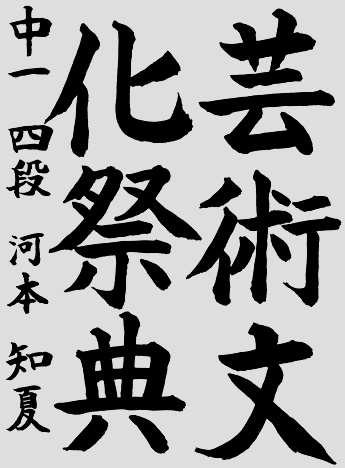 芸術文
化祭典
中一 四段 河本 知夏